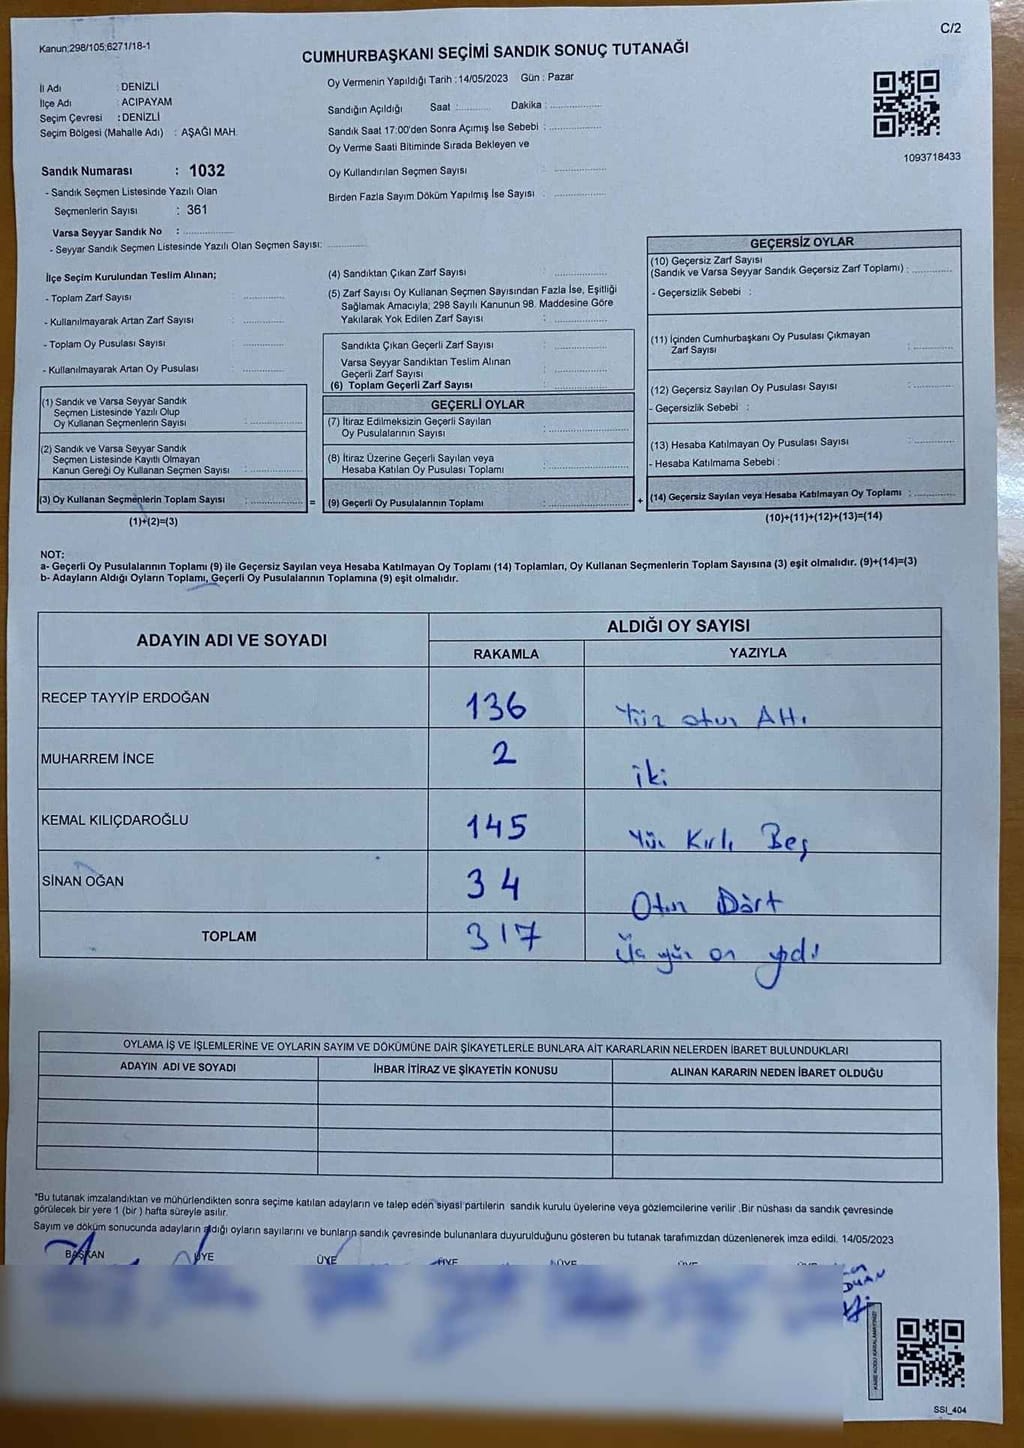 Kanun;298/105;6271/18-1
C/2
CUMHURBAŞKANI SEÇİMİ SANDIK SONUÇ TUTANAĞI
İl Adı : DENİZLİ
İlçe Adı : ACIPAYAM
Seçim Çevresi : DENİZLİ
Seçim Bölgesi (Mahalle Adı) : AŞAĞI MAH.
Oy Vermenin Yapıldığı Tarih : 14/05/2023 Gün : Pazar
Sandığın Açıldığı Saat : Dakika :
Sandık Saat 17:00'den Sonra Açımış İse Sebebi :
Oy Verme Saati Bitiminde Sırada Bekleyen ve
Oy Kullandırılan Seçmen Sayısı
Birden Fazla Sayım Döküm Yapılmış İse Sayısı :
1093718433
Sandık Numarası : 1032
- Sandık Seçmen Listesinde Yazılı Olan
Seçmenlerin Sayısı : 361
Varsa Seyyar Sandık No :
- Seyyar Sandık Seçmen Listesinde Yazılı Olan Seçmen Sayısı:
İlçe Seçim Kurulundan Teslim Alınan;
- Toplam Zarf Sayısı
- Kullanılmayarak Artan Zarf Sayısı :
- Toplam Oy Pusulası Sayısı
- Kullanılmayarak Artan Oy Pusulası
(1) Sandık ve Varsa Seyyar Sandık
Seçmen Listesinde Yazılı Olup
Oy Kullanan Seçmenlerin Sayısı :
(2) Sandık ve Varsa Seyyar Sandık
Seçmen Listesinde Kayıtlı Olmayan
Kanun Gereği Oy Kullanan Seçmen Sayısı :
(3) Oy Kullanan Seçmenlerin Toplam Sayısı :
(1)+(2)=(3)
(4) Sandıktan Çıkan Zarf Sayısı
(5) Zarf Sayısı Oy Kullanan Seçmen Sayısından Fazla İse, Eşitliği
Sağlamak Amacıyla; 298 Sayılı Kanunun 98. Maddesine Göre
Yakılarak Yok Edilen Zarf Sayısı :
Sandıkta Çıkan Geçerli Zarf Sayısı
Varsa Seyyar Sandıktan Teslim Alınan
Geçerli Zarf Sayısı :
(6) Toplam Geçerli Zarf Sayısı
GEÇERLİ OYLAR
(7) İtiraz Edilmeksizin Geçerli Sayılan
Oy Pusulalarının Sayısı :
(8) İtiraz Üzerine Geçerli Sayılan veya
Hesaba Katılan Oy Pusulası Toplamı :
= (9) Geçerli Oy Pusulalarının Toplamı :
GEÇERSİZ OYLAR
(10) Geçersiz Zarf Sayısı
(Sandık ve Varsa Seyyar Sandık Geçersiz Zarf Toplamı) :
- Geçersizlik Sebebi :
(11) İçinden Cumhurbaşkanı Oy Pusulası Çıkmayan
Zarf Sayısı :
(12) Geçersiz Sayılan Oy Pusulası Sayısı :
- Geçersizlik Sebebi :
(13) Hesaba Katılmayan Oy Pusulası Sayısı :
- Hesaba Katılmama Sebebi :
+ (14) Geçersiz Sayılan veya Hesaba Katılmayan Oy Toplamı :
(10)+(11)+(12)+(13)=(14)
NOT:
a- Geçerli Oy Pusulalarının Toplamı (9) ile Geçersiz Sayılan veya Hesaba Katılmayan Oy Toplamı (14) Toplamları, Oy Kullanan Seçmenlerin Toplam Sayısına (3) eşit olmalıdır. (9)+(14)=(3)
b- Adayların Aldığı Oyların Toplamı, Geçerli Oy Pusulalarının Toplamına (9) eşit olmalıdır.
ADAYIN ADI VE SOYADI
ALDIĞI OY SAYISI
RAKAMLA YAZIYLA
RECEP TAYYİP ERDOĞAN 136 Yüz otuz Altı
MUHARREM İNCE 2 iki
KEMAL KILIÇDAROĞLU 145 Yüz Kırk Beş
SİNAN OĞAN 34 Otuz Dört
TOPLAM 317 Üç yüz on yedi
OYLAMA İŞ VE İŞLEMLERİNE VE OYLARIN SAYIM VE DÖKÜMÜNE DAİR ŞİKAYETLERLE BUNLARA AİT KARARLARIN NELERDEN İBARET BULUNDUKLARI
ADAYIN ADI VE SOYADI İHBAR İTİRAZ VE ŞİKAYETİN KONUSU ALINAN KARARIN NEDEN İBARET OLDUĞU
*Bu tutanak imzalandıktan ve mühürlendikten sonra seçime katılan adayların ve talep eden siyasi partilerin sandık kurulu üyelerine veya gözlemcilerine verilir .Bir nüshası da sandık çevresinde
görülecek bir yere 1 (bir ) hafta süreyle asılır.
Sayım ve döküm sonucunda adayların aldığı oyların sayılarını ve bunların sandık çevresinde bulunanlara duyurulduğunu gösteren bu tutanak tarafımızdan düzenlenerek imza edildi. 14/05/2023
BAŞKAN ÜYE ÜYE ÜYE ÜYE ÜYE ÜYE
KARE KODU KARALAMAYINIZ!
SSI_404